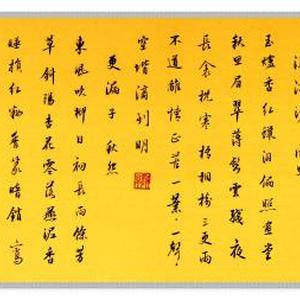 玉爐香紅蠟淚偏照畫堂
秋思眉翠薄鬢雲殘夜
長衾枕寒梧桐樹三更雨
不道離情正苦一葉一聲
空階滴到明
更漏子 秋
東風吹柳日初長雨餘芳
草斜陽杏花零落燕泥香
睡損紅妝香篆暗銷鸞